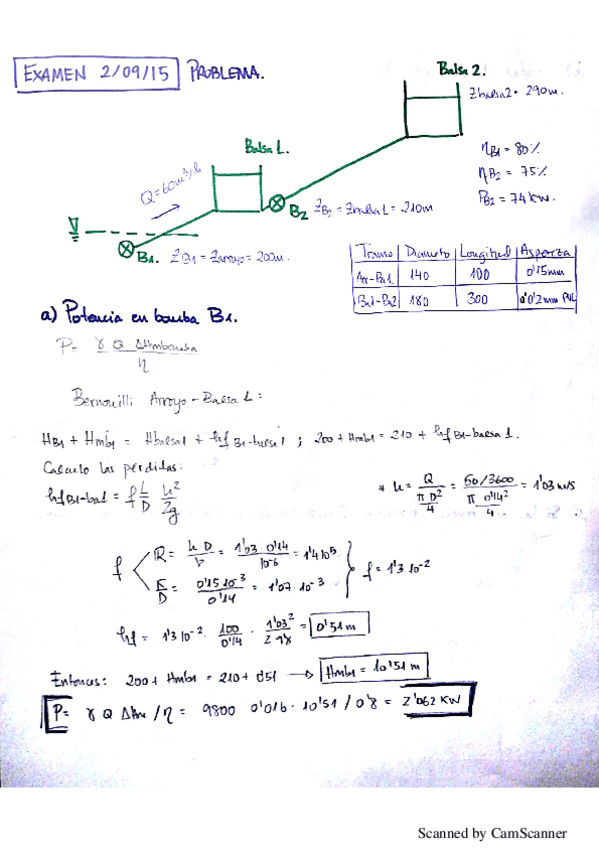 EXAMEN 2/09/15 PROBLEMA.
Balsa 2.
Zbalsa2 = 290m.
Balsa 1.
Q=60m³/h
ηB1 = 80%
ηB2 = 75%
PB2 = 74 kW.
B2 ZB2 = Zbalsa1 = 210m
B1. ZB1 = Zarroyo = 200m.
Tramo Diametro Longitud Aspereza
Arr-Bs1 140 100 0'15mm
Bs1-Bs2 180 300 0'02mm PVC
a) Potencia en bomba B1.
P= γ Q ΔHmbomba / η
Bernouilli Arroyo - Balsa 1:
HB1 + Hmb1 = Hbalsa1 + hf B1-balsa1 ; 200 + Hmb1 = 210 + hf B1-balsa1.
Calculo las perdidas:
hf B1-bal = f L/D u²/2g
* u = Q / (π D²/4) = 60/3600 / (π 0'14²/4) = 1'03 m/s
f
R = u D / ν = 1'03 · 0'14 / 10-6 = 1'4 10⁵
K/D = 0'15 10-3 / 0'14 = 1'07 · 10-3
f = 1'3 10-2
hf = 1'3 10-2 · 100/0'14 · 1'03²/2 9'8 = 0'51 m
Entonces: 200 + Hmb1 = 210 + 0'51 → Hmb1 = 10'51 m
P= γ Q ΔHm / η = 9800 0'016 · 10'51 / 0'8 = 2'062 KW
Scanned by CamScanner